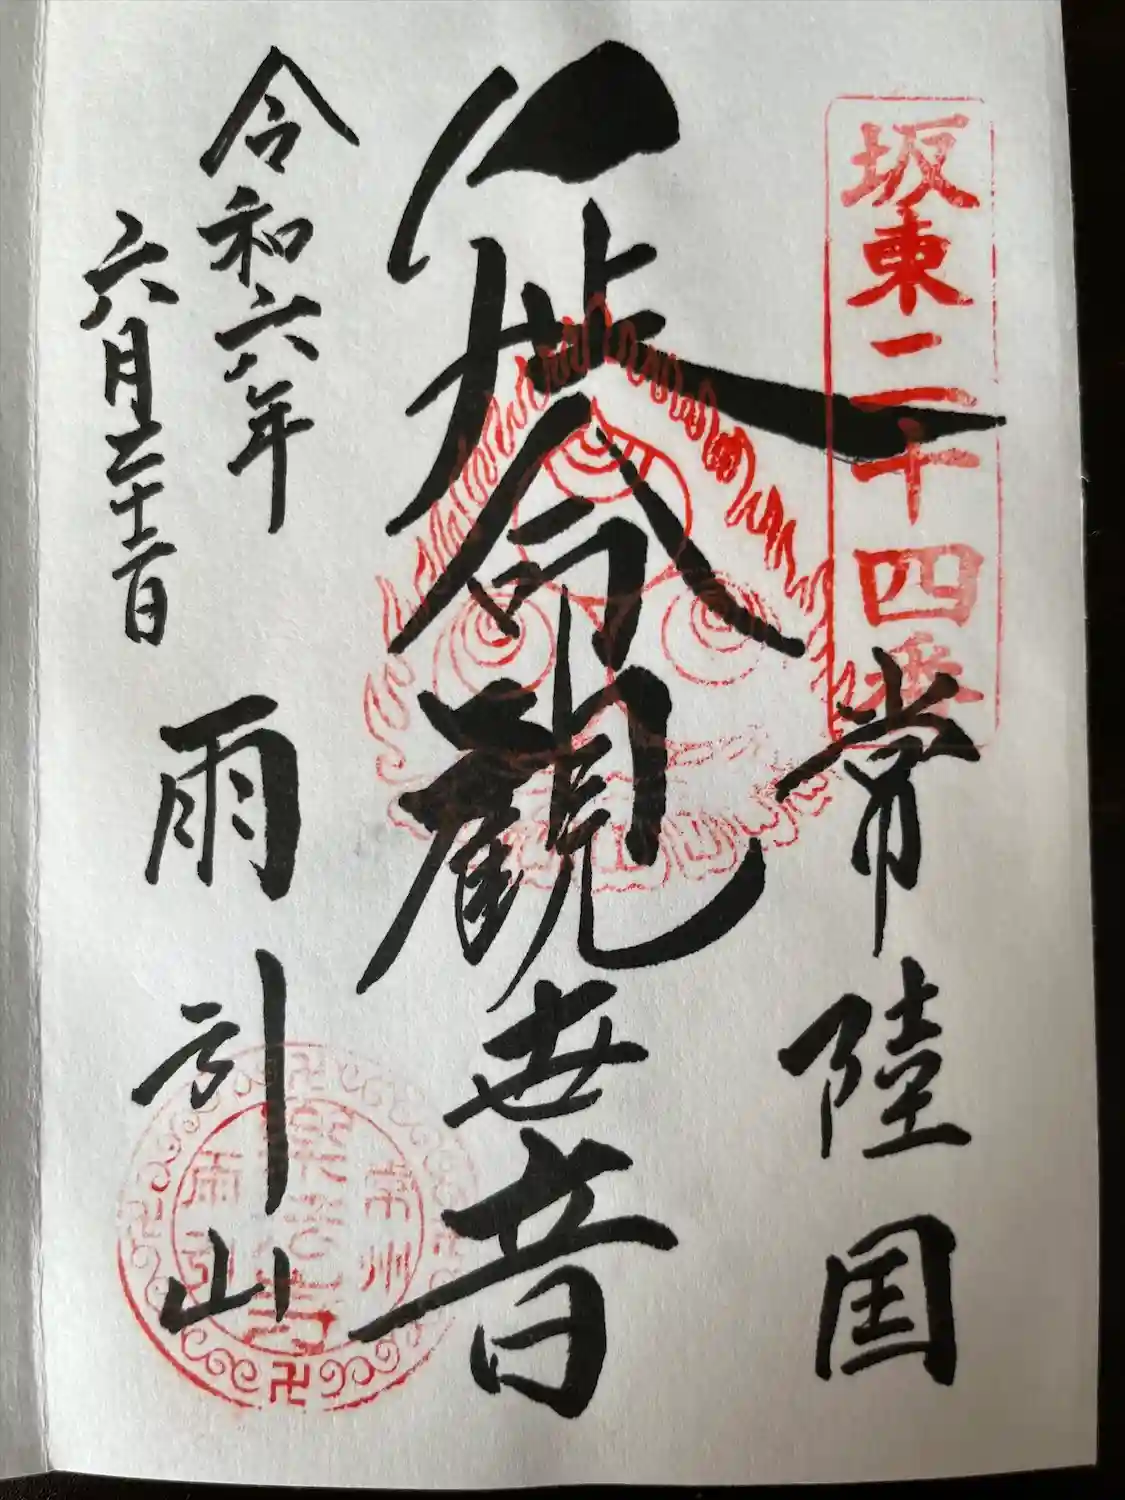 坂東二十四番
常陸国
延命観世音
令和六年
六月二十
雨引山
常州
楽法寺
雨引